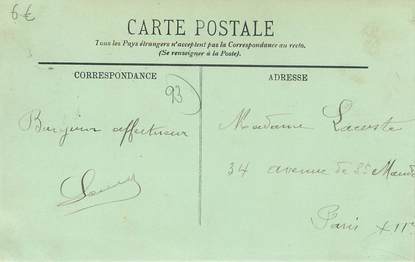 6€
CARTE POSTALE
Tous les Pays étrangers n'acceptent pas la Correspondance au recto.
(Se renseigner à la Poste).
CORRESPONDANCE
ADRESSE
93
Bonjour affectueux
Madame Lacoste
34 avenue de St Mandé
Paris XII